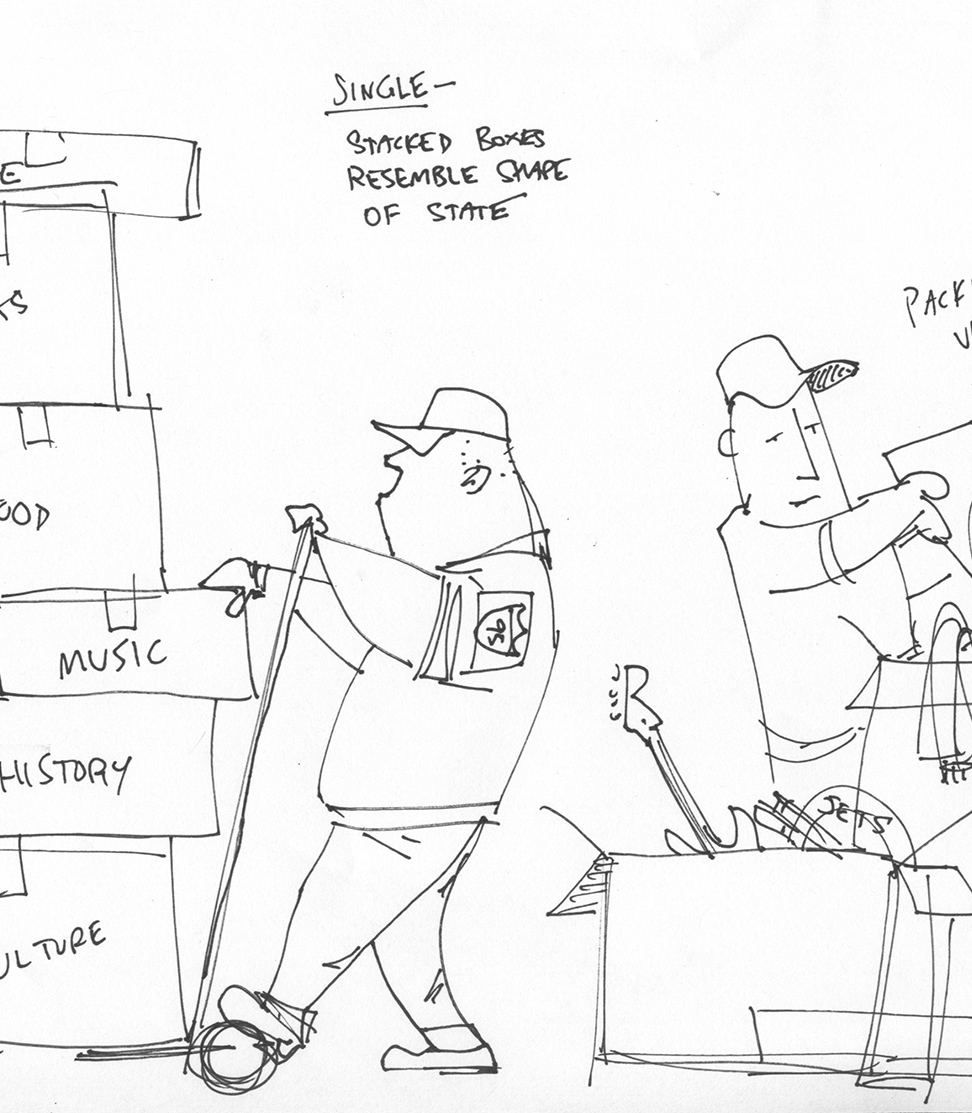 SINGLE—
STACKED BOXES
RESEMBLE SHAPE
OF STATE
E
KS
OOD
MUSIC
HISTORY
ULTURE
95
JETS
PACK